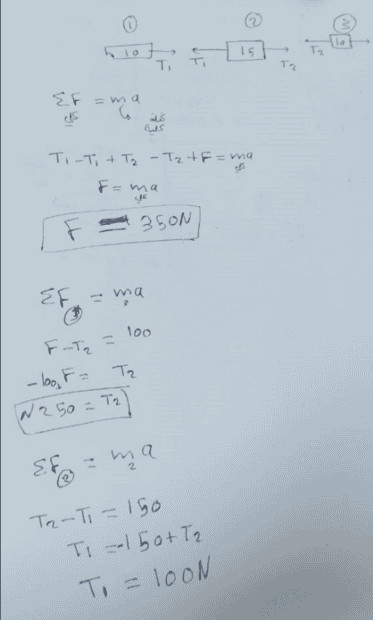 ① ② ③
10 T₁ T₁ 15 T₂ T₂ 10
ΣF = ma
كلي كتلة كلية
T₁ - T₁ + T₂ - T₂ + F = ma
كلي
F = ma
كلي
F = 350N
ΣF③ = m₃a
F - T₂ = 100
-100+F = T₂
N 250 = T₂
ΣF② = m₂a
T₂ - T₁ = 150
T₁ = -150 + T₂
T₁ = 100N